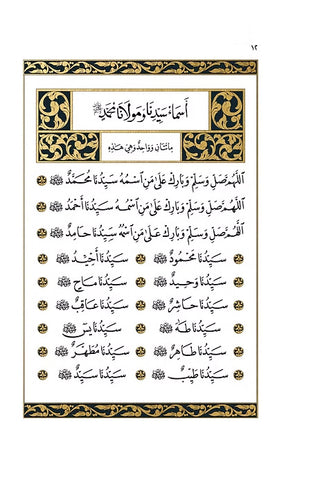 ١٢
أَسْمَاءُ سَيِّدِنَا وَمَوْلَانَا مُحَمَّدٍ ﷺ
مِائَتَانِ وَوَاحِدٌ وَهِيَ هَذِهِ
اللَّهُمَّ صَلِّ وَسَلِّمْ وَبَارِكْ عَلَى مَنِ اسْمُهُ سَيِّدُنَا مُحَمَّدٌ ﷺ
اللَّهُمَّ صَلِّ وَسَلِّمْ وَبَارِكْ عَلَى مَنِ اسْمُهُ سَيِّدُنَا أَحْمَدُ ﷺ
اللَّهُمَّ صَلِّ وَسَلِّمْ وَبَارِكْ عَلَى مَنِ اسْمُهُ سَيِّدُنَا حَامِدٌ ﷺ
سَيِّدُنَا مَحْمُودٌ ﷺ سَيِّدُنَا أَحِيدٌ ﷺ
سَيِّدُنَا وَحِيدٌ ﷺ سَيِّدُنَا مَاحٍ ﷺ
سَيِّدُنَا حَاشِرٌ ﷺ سَيِّدُنَا عَاقِبٌ ﷺ
سَيِّدُنَا طٰهٰ ﷺ سَيِّدُنَا يٰسٓ ﷺ
سَيِّدُنَا طَاهِرٌ ﷺ سَيِّدُنَا مُطَهَّرٌ ﷺ
سَيِّدُنَا طَيِّبٌ ﷺ سَيِّدُنَا سَيِّدٌ ﷺ